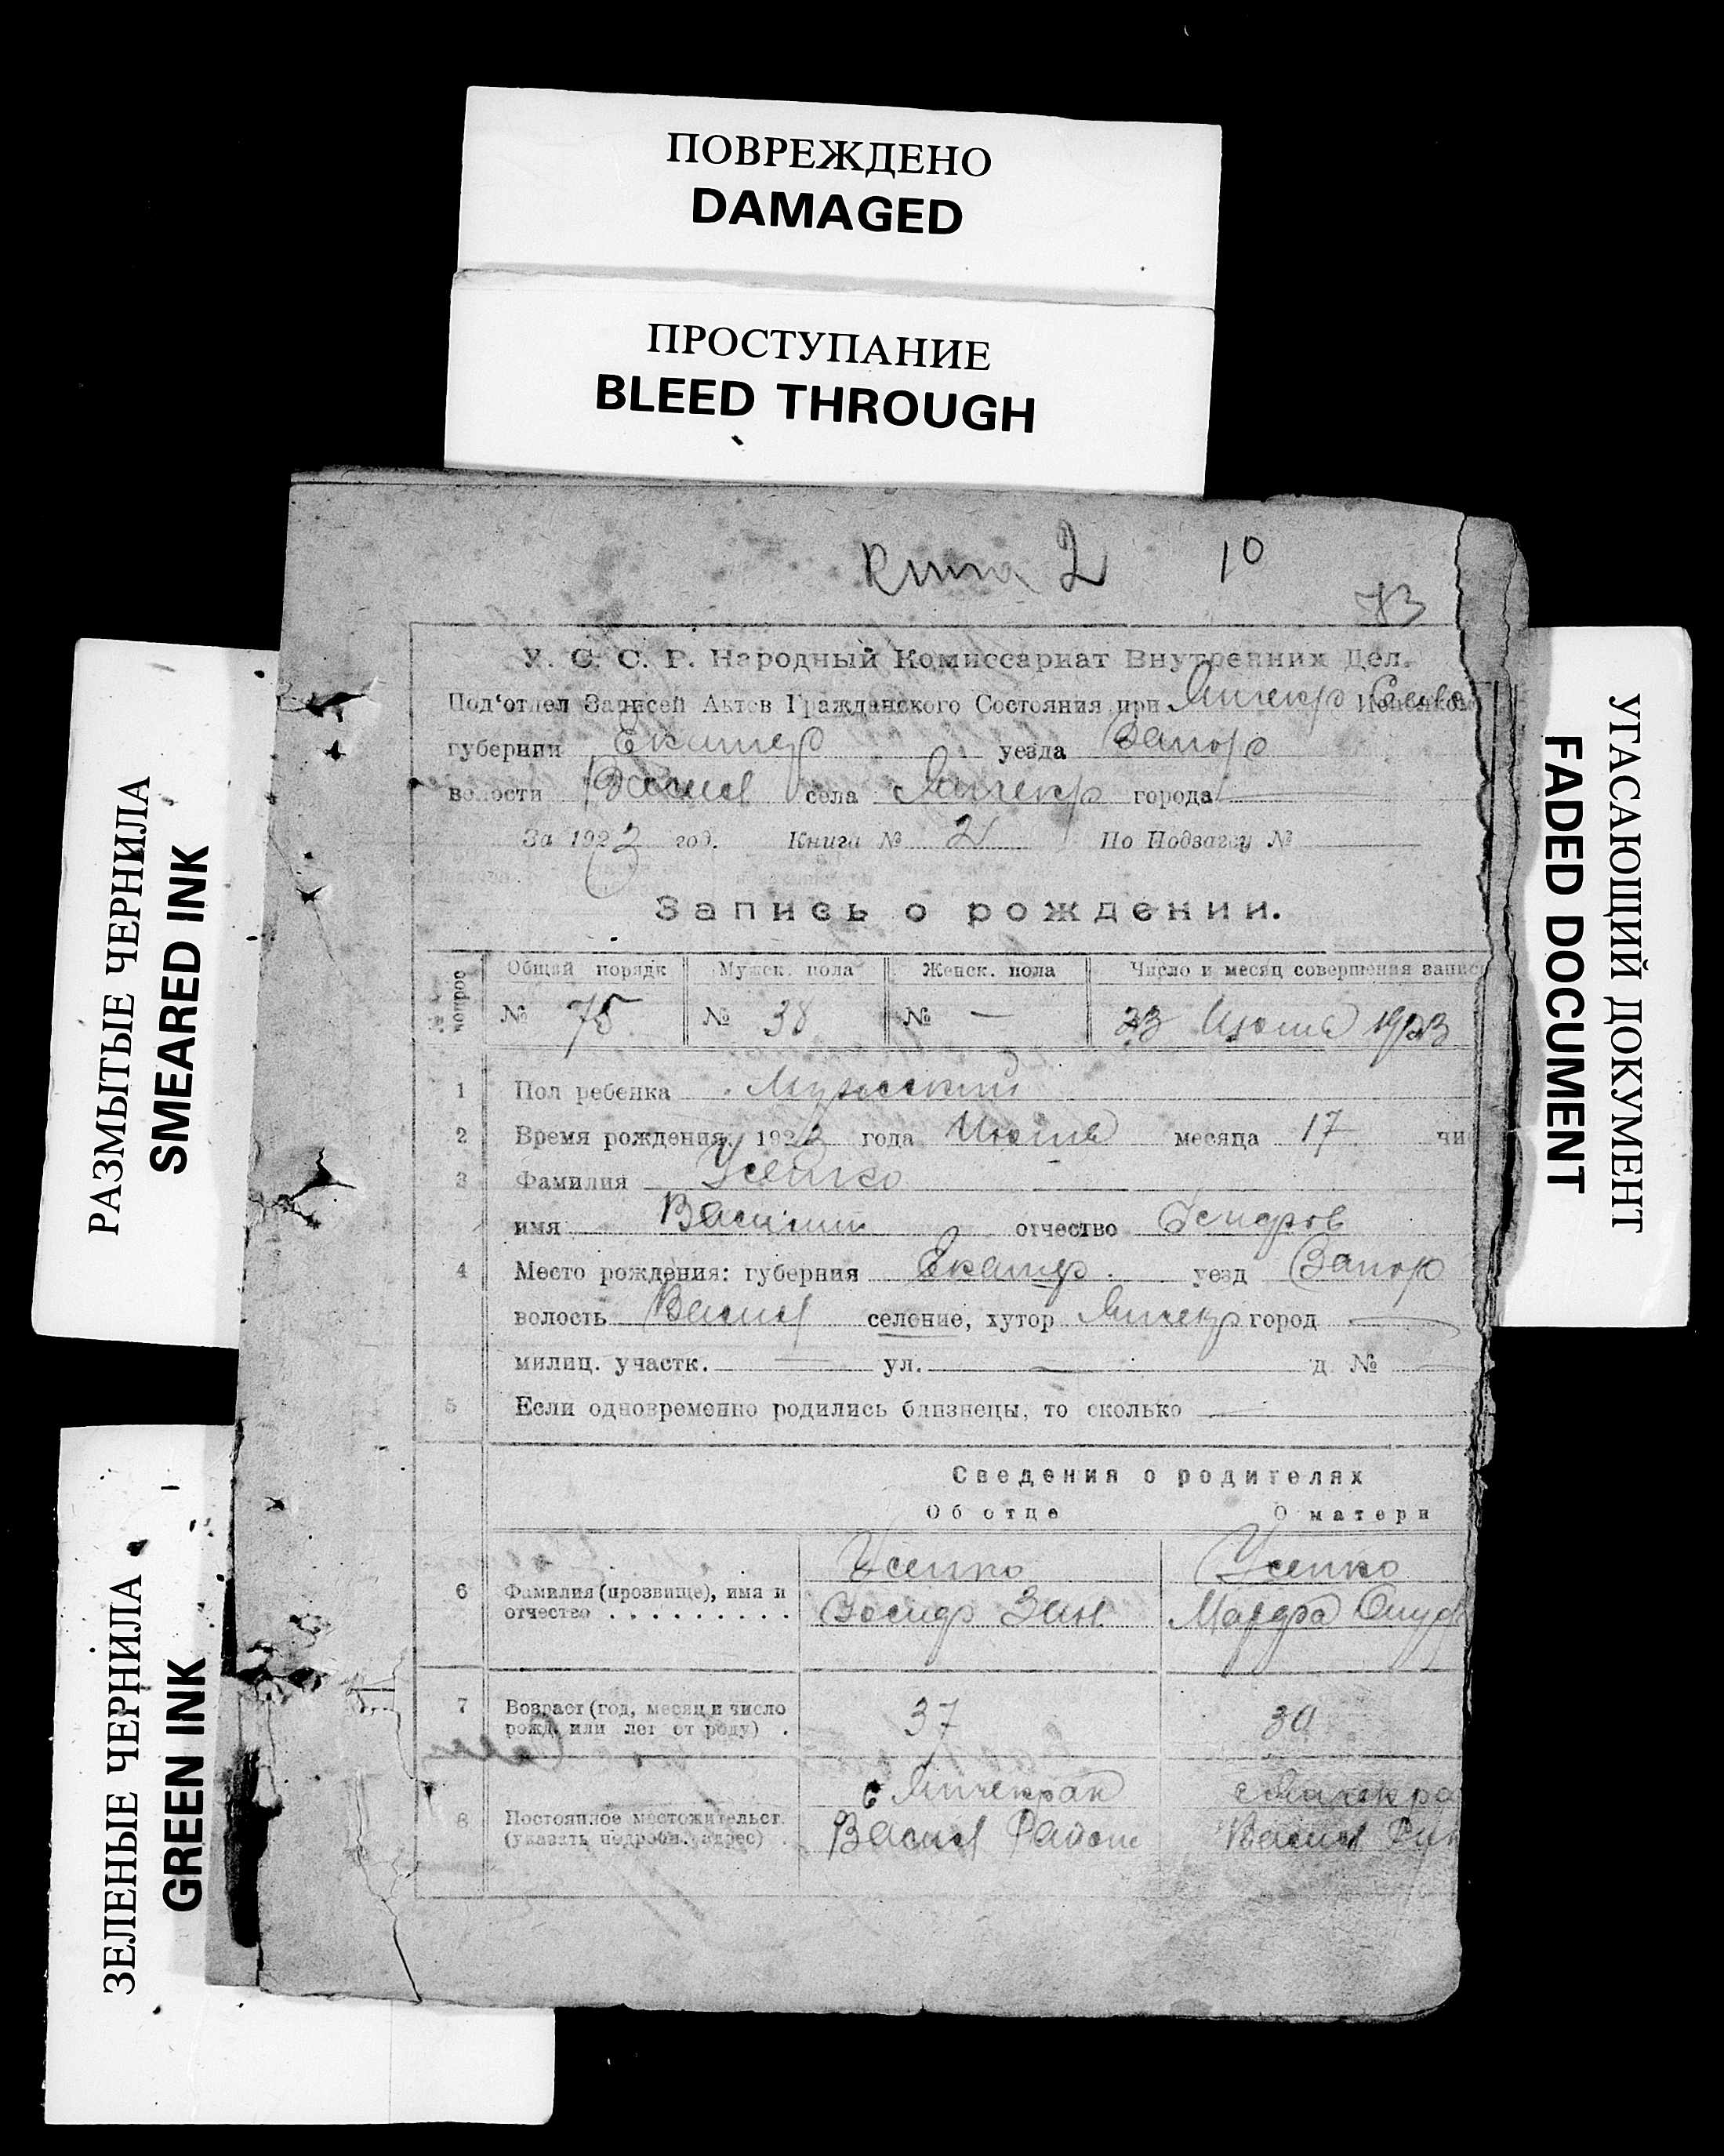 ПОВРЕЖДЕНО
DAMAGED
ПРОСТУПАНИЕ
BLEED THROUGH
РАЗМЫТЫЕ ЧЕРНИЛА
SMEARED INK
ЗЕЛЕНЫЕ ЧЕРНИЛА
GREEN INK
УГАСАЮЩИЙ ДОКУМЕНТ
FADED DOCUMENT
2 10
73
У. С. С. Р. Народный Комиссариат Внутренних Дел.
Под'отдел Записей Актов Гражданского Состояния при Янчекр
губернии Екатер уезда Запор
волости Васил села Янчекр города
За 1923 год. Книга № 2 По Подзагсу №
Запись о рождении.
Общий порядк Мужск. пола Женск. пола Число и месяц совершения запис
№ 75 № 38 № — 23 Июля 1923
1 Пол ребенка Мужский
2 Время рождения 1923 года Июля месяца 17 чи
3 Фамилия Усенко
имя Василий отчество
4 Место рождения: губерния Екатер уезд Запор
волость Васил селение, хутор Янчекр город —
милиц. участк. — ул. — д №
5 Если одновременно родились близнецы, то сколько —
Сведения о родителях
Об отце О матери
6 Фамилия (прозвище), имя и отчество Усенко Усенко
7 Возраст (год, месяц и число рожд. или лет от роду) 37 30
8 Постоянное местожительст. (указать подробн. адрес) с Янчекрак
Васил Район Васил